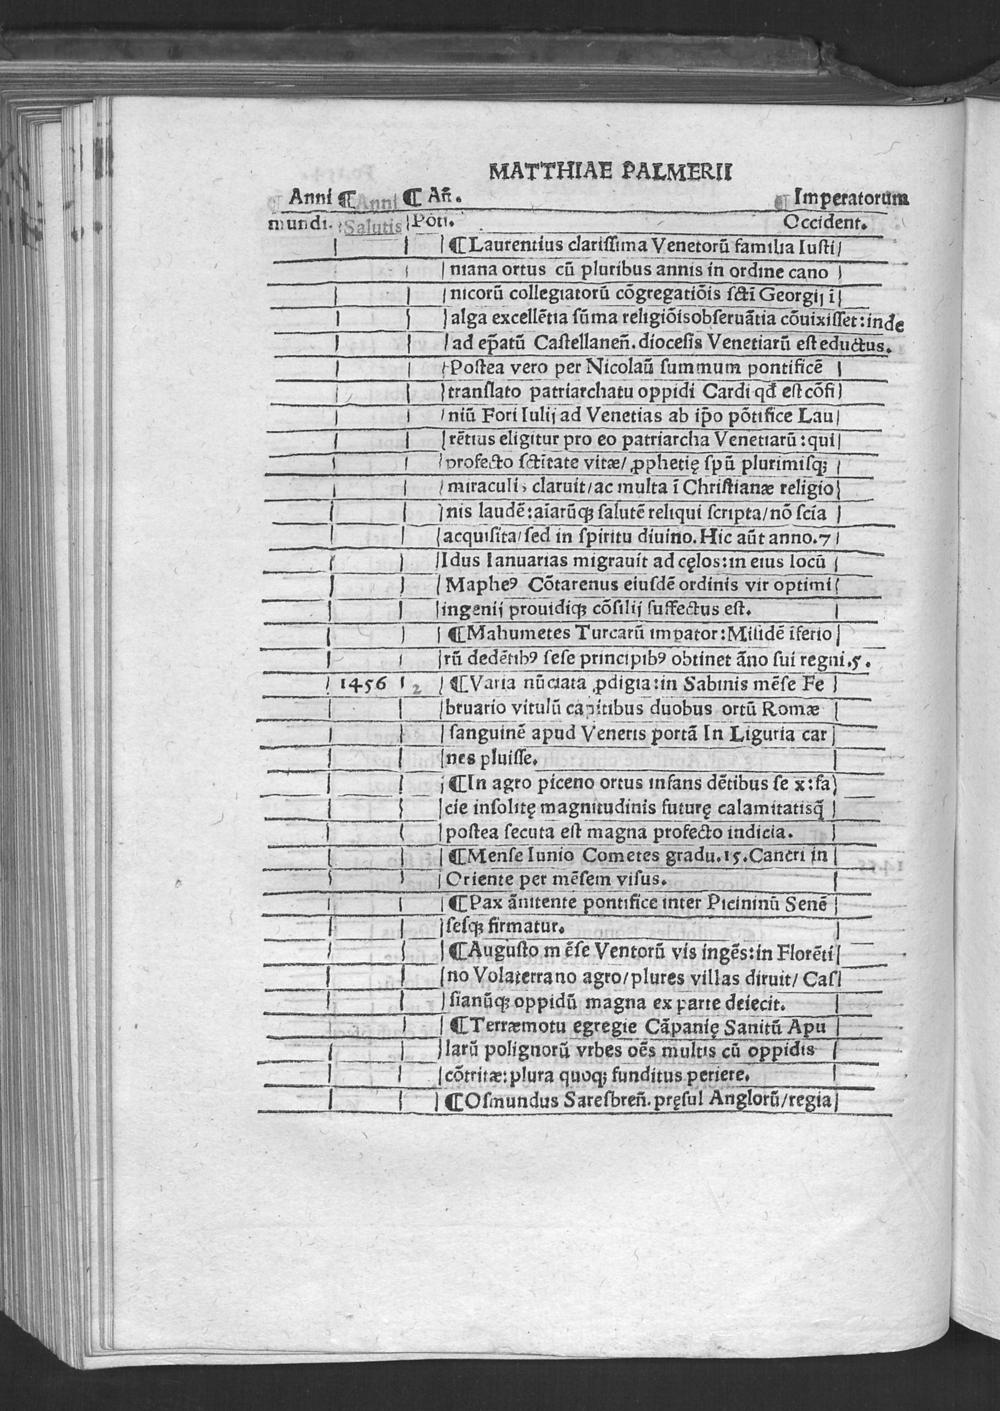 MATTHIAE PALMERII
Anni ¶ Anni ¶ Añ. ¶ Imperatorum
mundi. Salutis Pōti. Occident.
¶ Laurentius clarissima Venetorū familia Iusti
niana ortus cū pluribus annis in ordine cano
nicorū collegiatorū cōgregatiōis sctī Georgij ī
alga excellētia sūma religiōisobseruātia cōuixisset: inde
ad ep̄atū Castellaneñ. diocesis Venetiarū est eductus.
Postea vero per Nicolaū summum pontificē
translato patriarchatu oppidi Cardi qđ est cōfi
niū Fori Iulij ad Venetias ab ip̄o pōtifice Lau
rētius eligitur pro eo patriarcha Venetiarū: qui
profecto sctītate vitæ/ ꝓphetię spū plurimisqꝫ
miraculis claruit/ ac multa ī Christianæ religio
nis laudē: aīarūqꝫ salutē reliqui scripta/ nō scīa
acquisita/ sed in spiritu diuino. Hic aūt anno. 7
Idus Ianuarias migrauit ad cęlos: in eius locū
Mapheꝰ Cōtarenus eiusdē ordinis vir optimi
ingenij prouidiqꝫ cōsilij suffectus est.
¶ Mahumetes Turcarū imꝑator: Misidē īferio
rū dedētibꝰ sese principibꝰ obtinet āno sui regni. 5.
1456 2 ¶ Varia nūciata ꝓdigia: in Sabinis mēse Fe
bruario vitulū capitibus duobus ortū Romæ
sanguinē apud Veneris portā In Liguria car
nes pluisse.
¶ In agro piceno ortus infans dētibus se x: fa
cie insolitę magnitudinis futurę calamitatisq̄
postea secuta est magna profecto indicia.
¶ Mense Iunio Cometes gradu. 15. Cancri in
Oriente per mēsem visus.
¶ Pax ānitente pontifice inter Picininū Senē
sesqꝫ firmatur.
¶ Augusto mēse Ventorū vis ingēs: in Florēti
no Volaterrano agro/ plures villas diruit/ Cas
sianūqꝫ oppidū magna ex parte deiecit.
¶ Terræmotu egregie Cāpanię Sanitū Apu
larū polignorū vrbes oēs multis cū oppidis
cōtritæ: plura quoqꝫ funditus periere.
¶ Osmundus Saresbreñ. pręsul Anglorū/ regia